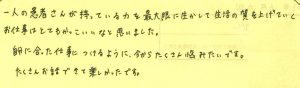 一人の患者さんが持っている力を最大限に生かして生活の質を上げていく
お仕事はとてもかっこいいなと思いました。
自分に合った仕事につけるように、今からたくさん悩みたいです。
たくさんお話できて楽しかったです。